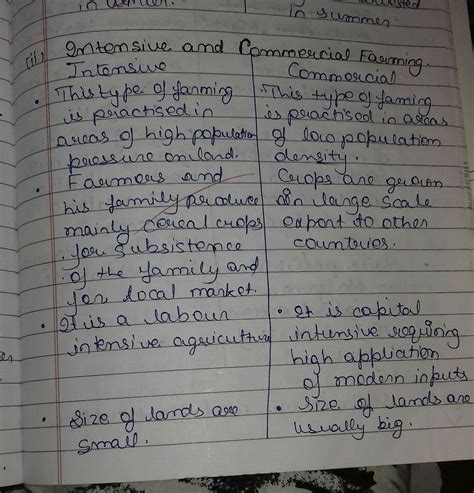 in winter.
in summer.
(ii) Intensive and Commercial Farming.
Intensive
• This type of farming
is practised in
areas of high population
pressure on land.
• Farmers and
his family produce
mainly cereal crops
for subsistence
of the family and
for local market.
• It is a labour
intensive agriculture
• Size of lands are
small.
Commercial
• This type of faming
is practised in areas
of low population
density.
Crops are grown
on large scale
export to other
countries.
• It is capital
intensive requiring
high application
of modern inputs
• Size of lands are
usually big.